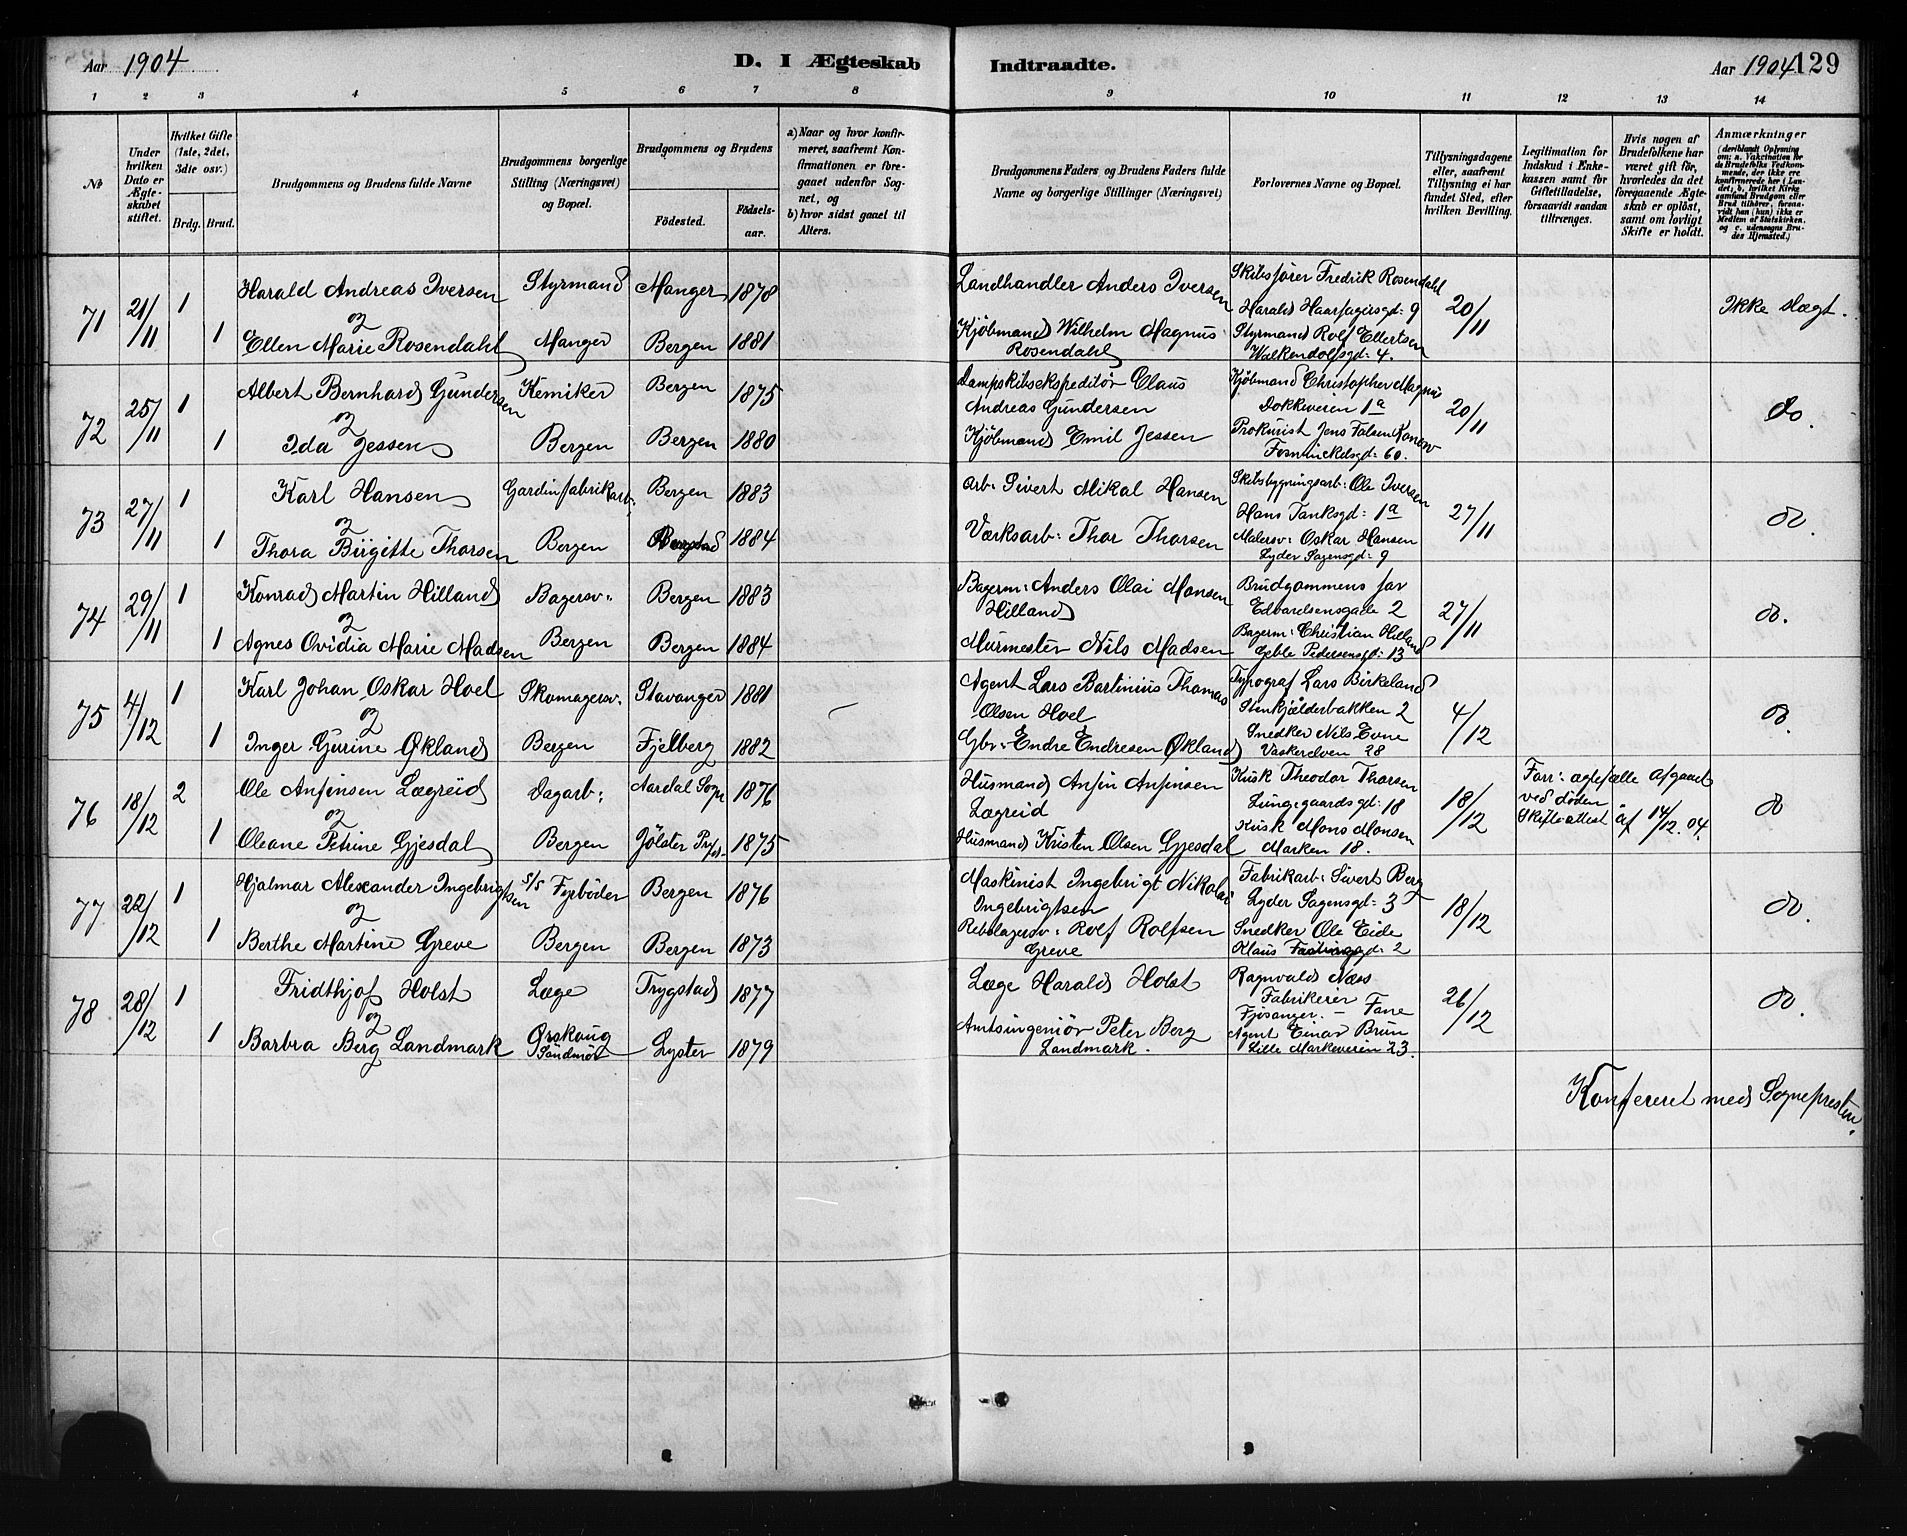 Aar 1904
D. I Ægteskab
Indtraadte.
Aar 1904 129
1 2 3 4 5 6 7 8 9 10 11 12 13 14
No
Under hvilken Dato er Ægteskabet stiftet.
Hvilket Gifte (1ste, 2det, 3die osv.)
Brdg. Brud.
Brudgommens og Brudens fulde Navne
Brudgommens borgerlige Stilling (Næringsvei) og Bopæl.
Brudgommens og Brudens
Födested.
Födselsaar.
a) Naar og hvor konfirmeret, saafremt Konfirmationen er foregaaet udenfor Sognet, og
b) hvor sidst gaaet til Alters.
Brudgommens Faders og Brudens Faders fulde Navne og borgerlige Stillinger (Næringsvei)
Forlovernes Navne og Bopæl.
Tillysningsdagene eller, saafremt Tillysning ei har fundet Sted, efter hvilken Bevilling.
Legitimation for Indskud i Enkekassen samt for Giftetilladelse, forsaavidt saadan tiltrænges.
Hvis nogen af Brudefolkene har været gift för, hvorledes da det foregaaende Ægteskab er oplöst, samt om lovligt Skifte er holdt.
Anmærkninger (deriblandt Oplysning om: a. Vakcination for de Brudefolks Vedkommende, der ikke ere konfirmerede her i Landet; b. hvilket Kirkesamfund Brudgom eller Brud tilhörer, forsaavidt han (hun) ikke er Medlem af Statskirken, og c. udensogns Brudes Hjemsted.)
71 21/11 1 Harald Andreas Iversen Styrmand Manger 1878 Landhandler Anders Iversen Skibsfører Fredrik Rosendahl
Harald Haarfagersgd: 9 20/11 Ikke slægt.
1 Ellen Marie Rosendahl Manger Bergen 1881 Kjøbmand Wilhelm Magnus Rosendahl Styrmand Rolf Ellertsen
Walkendolfsgd: 4.
72 25/11 1 Albert Bernhard Gundersen Kemiker Bergen 1875 Dampskibsekspeditör Claus Andreas Gundersen Kjöbmand Christopher Magnus
Dokkeveien 1a 20/11 do.
1 Ida Jessen Bergen Bergen 1880 Kjøbmand Emil Jessen Prokurist Jens Falsen
60.
73 27/11 1 Karl Hansen Gardinfabrikarb: Bergen 1883 Arb: Sivert Mikal Hansen Skibsbygningsarb: Ole Iversen
Hans Tanksgd: 1a 27/11 do.
1 Thora Birgitte Thorsen Bergen 1884 Værksarb: Thor Thorsen Malersv: Oskar Hansen
Lyder Sagensgd: 9
74 29/11 1 Konrad Martin Hilland Bagersv: Bergen 1883 Bagerm: Anders Olai Monsen Hilland Brudgommens far
Edvardsensgade 2 27/11 do.
1 Agnes Ovidia Marie Madsen Bergen Bergen 1884 Murmester Nils Madsen Bagerm: Christian Hilland
Geble Pedersensgd: 13
75 4/12 1 Karl Johan Oskar Hoel Skomagersv. Stavanger 1881 Agent Lars Bartinius Thomas Olsen Hoel Typograf Lars Birkeland
Stenkjælderbakken 2 4/12 do.
1 Inger Gurine Økland Bergen Fjelberg 1882 Gbr: Endre Endresen Økland Snedker Nils
Vaskerelven 28
76 18/12 2 Ole Anfinsen Lægreid Dagarb: Aardal Sogn 1876 Husmand Anfin Anfinsen Lægreid Kusk Theodor Thorsen
Lungegaardsgd: 18 18/12 Forr: ægtefælle afgaaet ved døden Skifteattest af 14/12.04. do
1 Oleane Petrine Gjesdal Bergen Jölster 1875 Husmand Kristen Olsen Gjesdal Kusk Mons Monsen
Marken 18.
77 22/12 1 Hjalmar Alexander Ingebrigtsen S/S Fyrbøder Bergen 1876 Maskinist Ingebrigt Nikolai Ingebrigtsen Fabrikarb: Sivert Berg
Lyder Sagensgd: 3 18/12 do.
1 Berthe Martine Greve Bergen Bergen 1873 Rebslagersv: Rolf Rolfsen Greve Snedker Ole Eide
Klaus 2
78 28/12 1 Fridthjof Holst Læge Trygstad 1877 Læge Harald Holst Ragnvald Næss
Fabrikeier
Fjösanger. – Fane 26/12 do.
1 Barbra Berg Landmark Ørskoug Söndmör Lyster 1879 Amtsingeniör Peter Berg Landmark. Agent Einar Brun
Lille Markeveien 23.
Konfereret med Sognepresten.